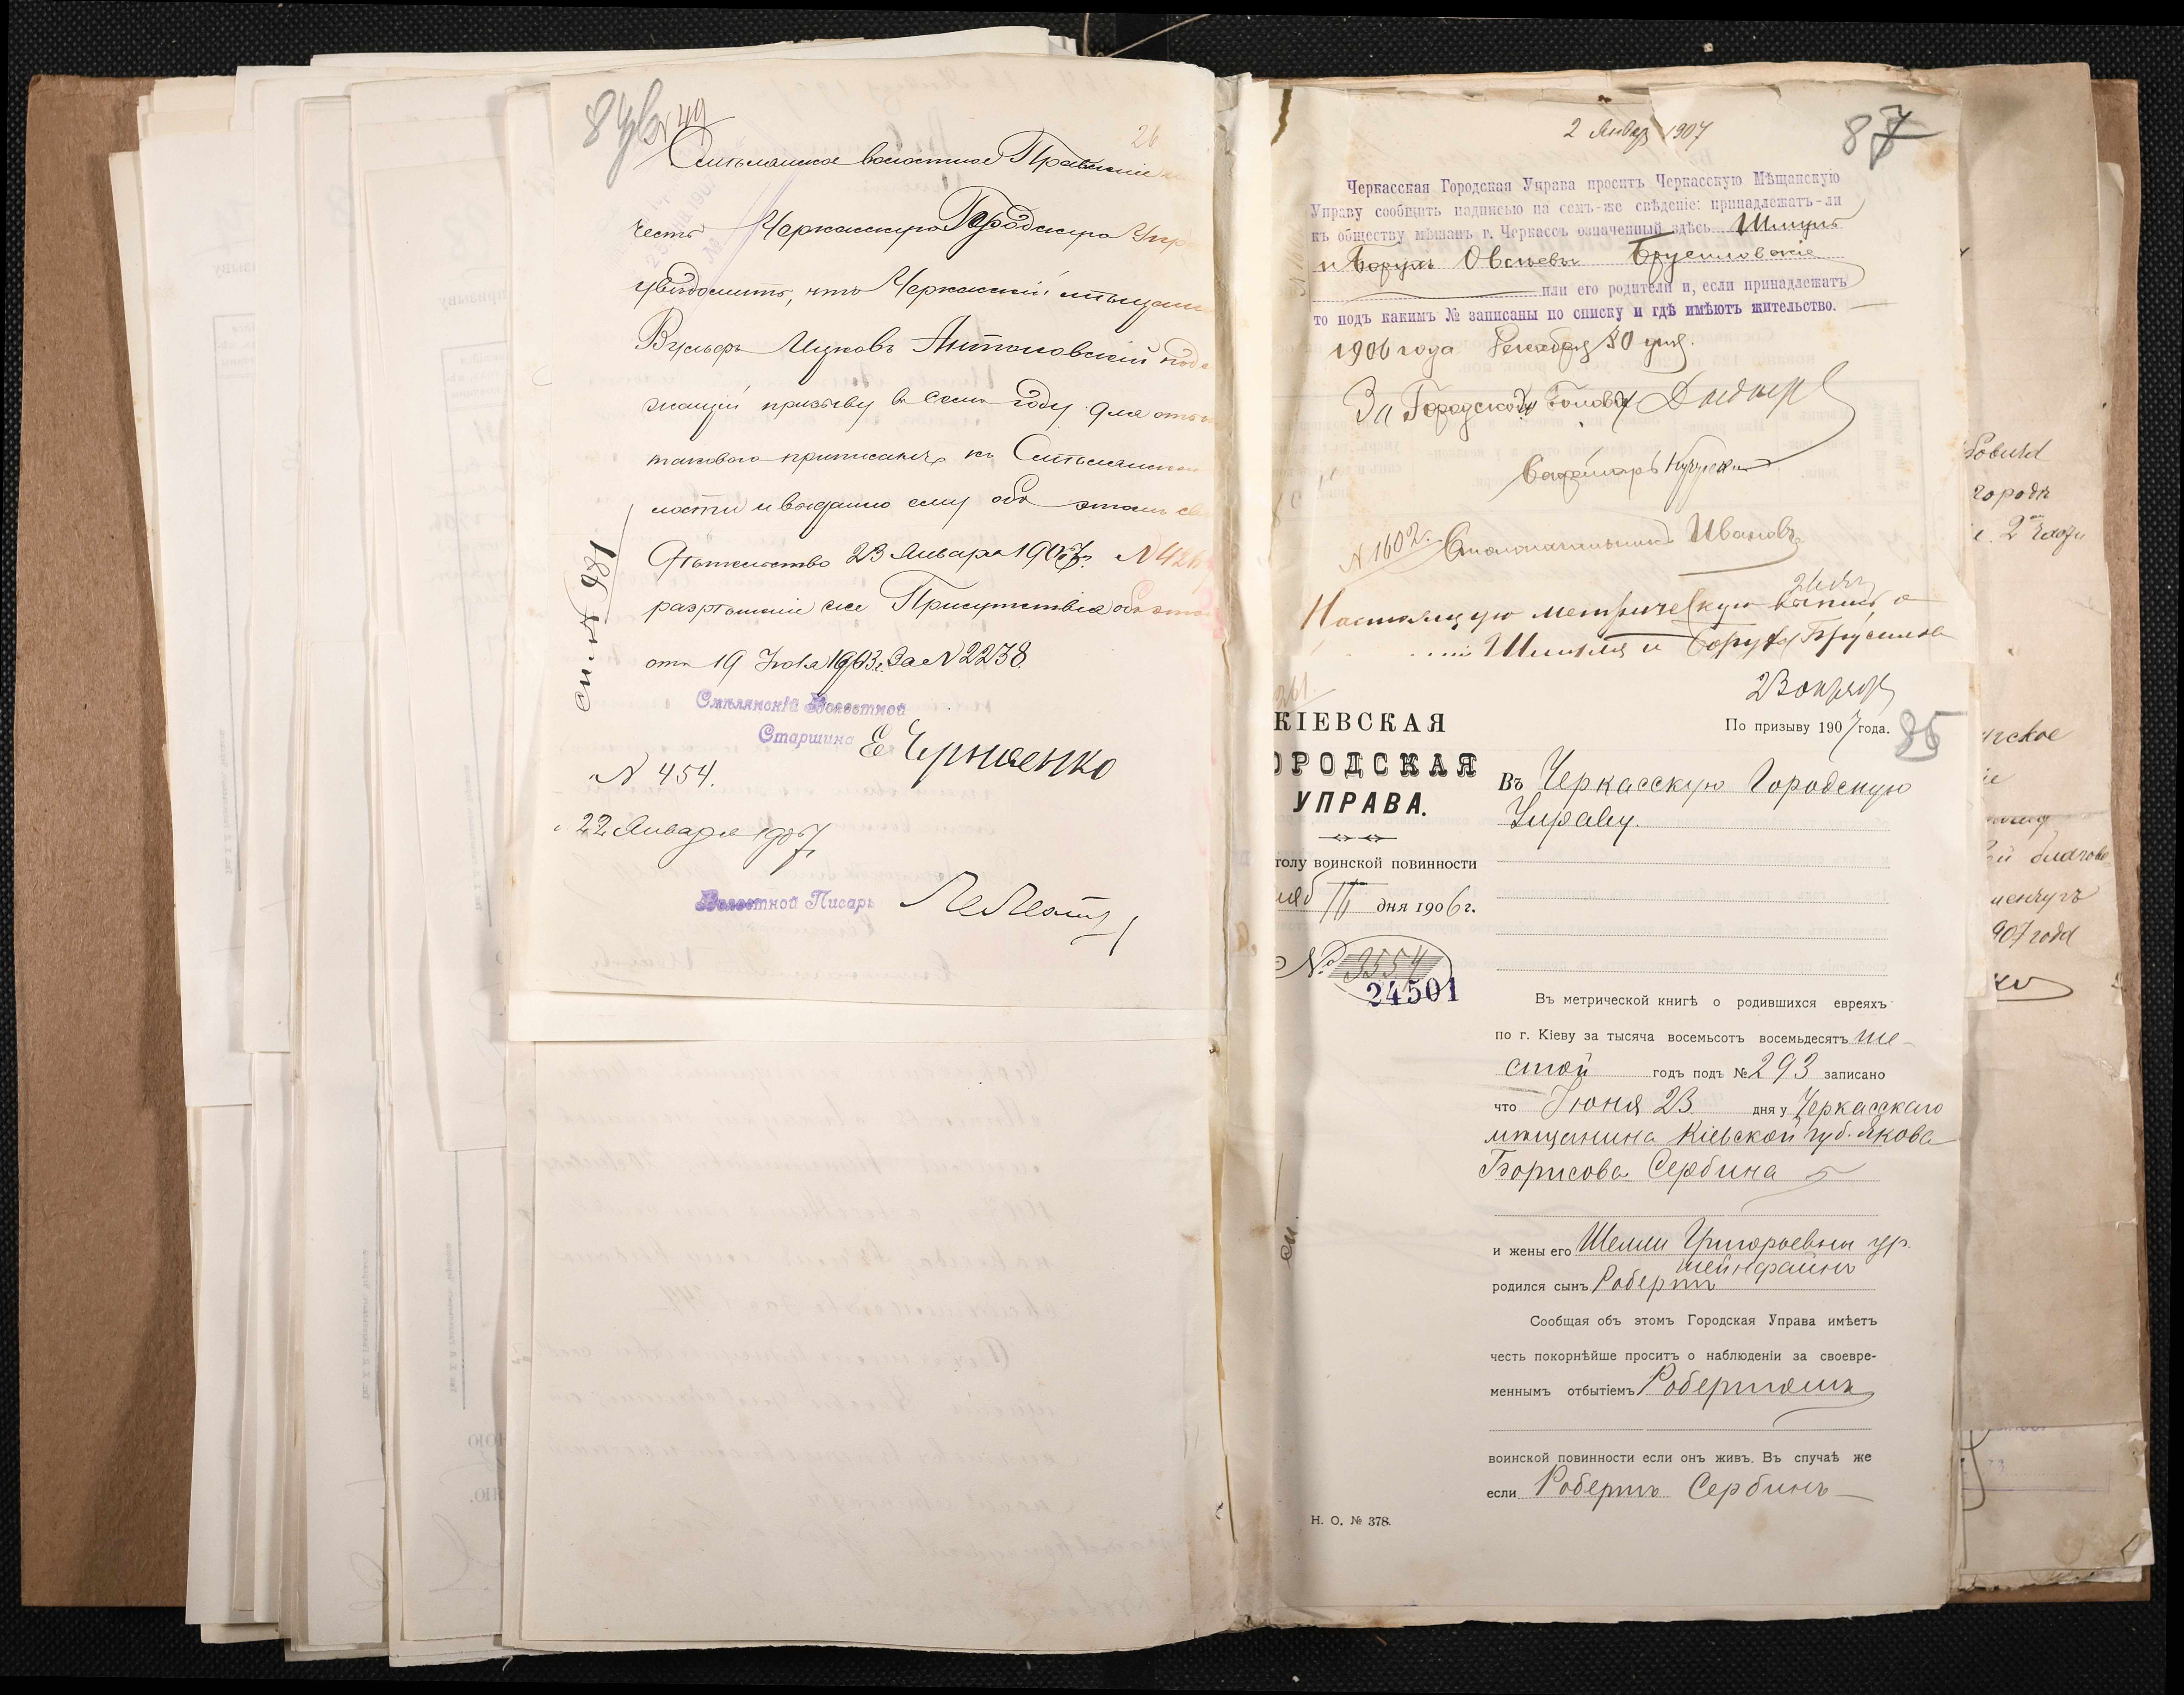 84об
№ 49
26
Смѣлянское волостное Правленіе
честь Черкасскую Городскую Упр
увѣдомить, что Черкасскій мѣщанин
Вульфъ Ицковъ Антоновскій подл
жащій призыву въ семъ году для отбы
таковаго приписанъ къ Смѣлянской
лости и выдано ему объ этомъ св
дѣтельство 23 Января 1907 г. № 426
разрѣшеніе же Присутствія объ этомъ
отъ 19 Іюля 1903 г. за № 2238
Смѣлянскій Волостной
Старшина Е Черняенко
№ 454.
22 Января 1907 г.
Волостной Писарь
сп. № 981
2 Январ 1907
87
Черкасская Городская Управа проситъ Черкасскую Мѣщанскую
Управу сообщить надписью на семъ-же свѣденіе: принадлежатъ-ли
къ обществу мѣщанъ г. Черкассъ означенный здѣсь Шмуль
и Борухъ Овсѣевы Брусиловскіе
или его родители и, если принадлежатъ
то подъ какимъ № записаны по списку и гдѣ имѣютъ жительство.
1906 года Декабря 30 дня.
За Городского Голову
Секретарь
№ 1602.
Столоначальникъ Ивановъ
Настоящую метрическую выпись о
Шмуля и Боруха Брусилов
КІЕВСКАЯ
ОРОДСКАЯ
УПРАВА.
толу воинской повинности
дня 1906 г.
№ 3554
24501
По призыву 1907 года.
85
Въ Черкасскую Городскую
Управу.
Въ метрической книгѣ о родившихся евреяхъ
по г. Кіеву за тысяча восемьсотъ восемьдесятъ ше-
стой годъ подъ № 293 записано
что Іюня 23 дня у Черкасскаго
мѣщанина Кіевской губ. Якова
Борисова Сербина
и жены его Шелли Григорьевны ур.
Шейнфаинъ
родился сынъ Робертъ
Сообщая объ этомъ Городская Управа имѣетъ
честь покорнѣйше проситъ о наблюденіи за своевре-
меннымъ отбытіемъ Робертомъ
воинской повинности если онъ живъ. Въ случаѣ же
если Робертъ Сербинъ
Н. О. № 378.
городѣ
907 года